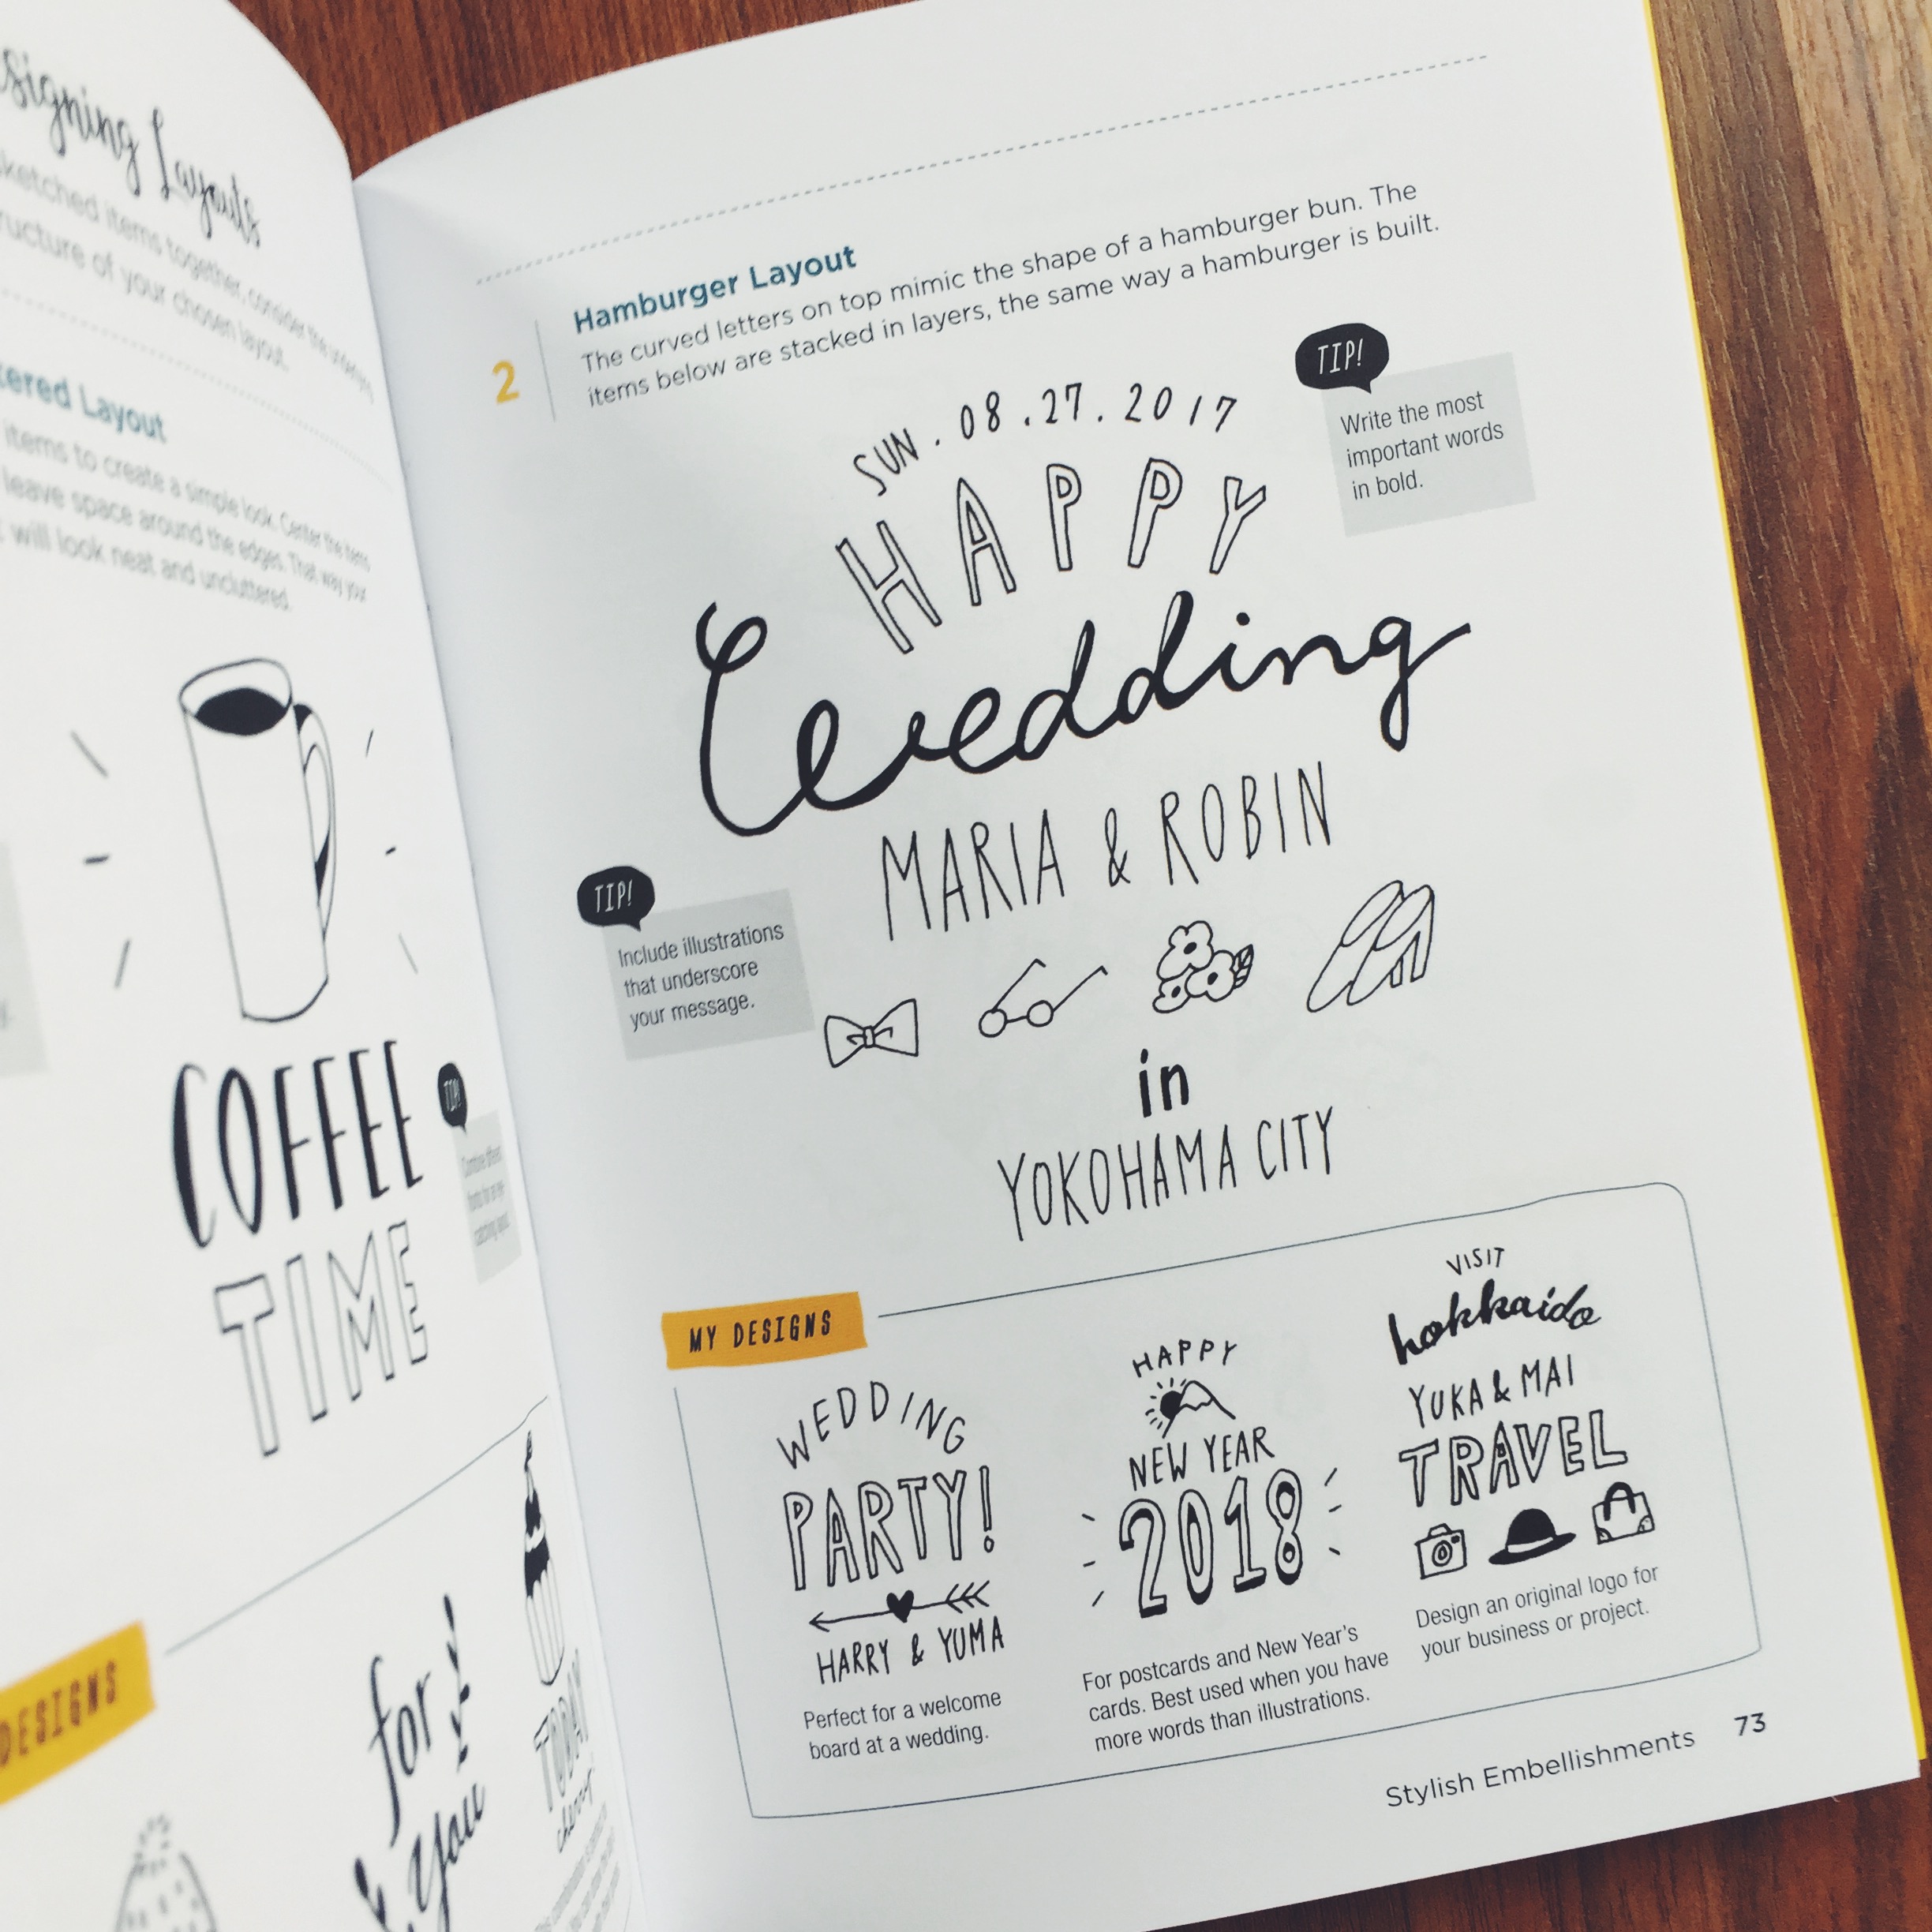 Layouts
sketched items together, consider the
structure of your chosen layout.
Layout
items to create a simple look. Center the items
leave space around the edges. That way your
will look neat and uncluttered.
COFFEE
TIME
TIP!
DESIGNS
for
you
TODAY
cherry
2
Hamburger Layout
The curved letters on top mimic the shape of a hamburger bun. The
items below are stacked in layers, the same way a hamburger is built.
TIP!
Write the most
important words
in bold.
SUN. 08.27.2017
HAPPY
Wedding
MARIA & ROBIN
TIP!
Include illustrations
that underscore
your message.
in
YOKOHAMA CITY
MY DESIGNS
WEDDING
PARTY!
HARRY & YUMA
Perfect for a welcome
board at a wedding.
HAPPY
NEW YEAR
2018
For postcards and New Year's
cards. Best used when you have
more words than illustrations.
VISIT
hokkaido
YUKA & MAI
TRAVEL
Design an original logo for
your business or project.
Stylish Embellishments 73